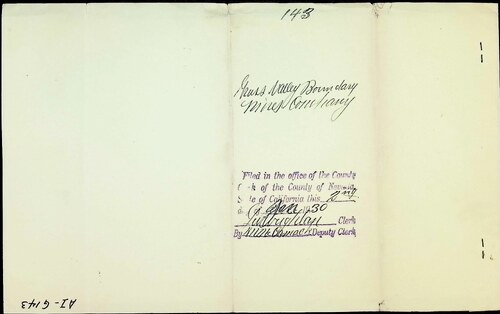 143
Grass Valley Boundary
Mines Company
Filed in the office of the County
Clerk of the County of Nevada
State of California this 2nd
day of Jan 1930
Clerk
By Deputy Clerk
AI-G143